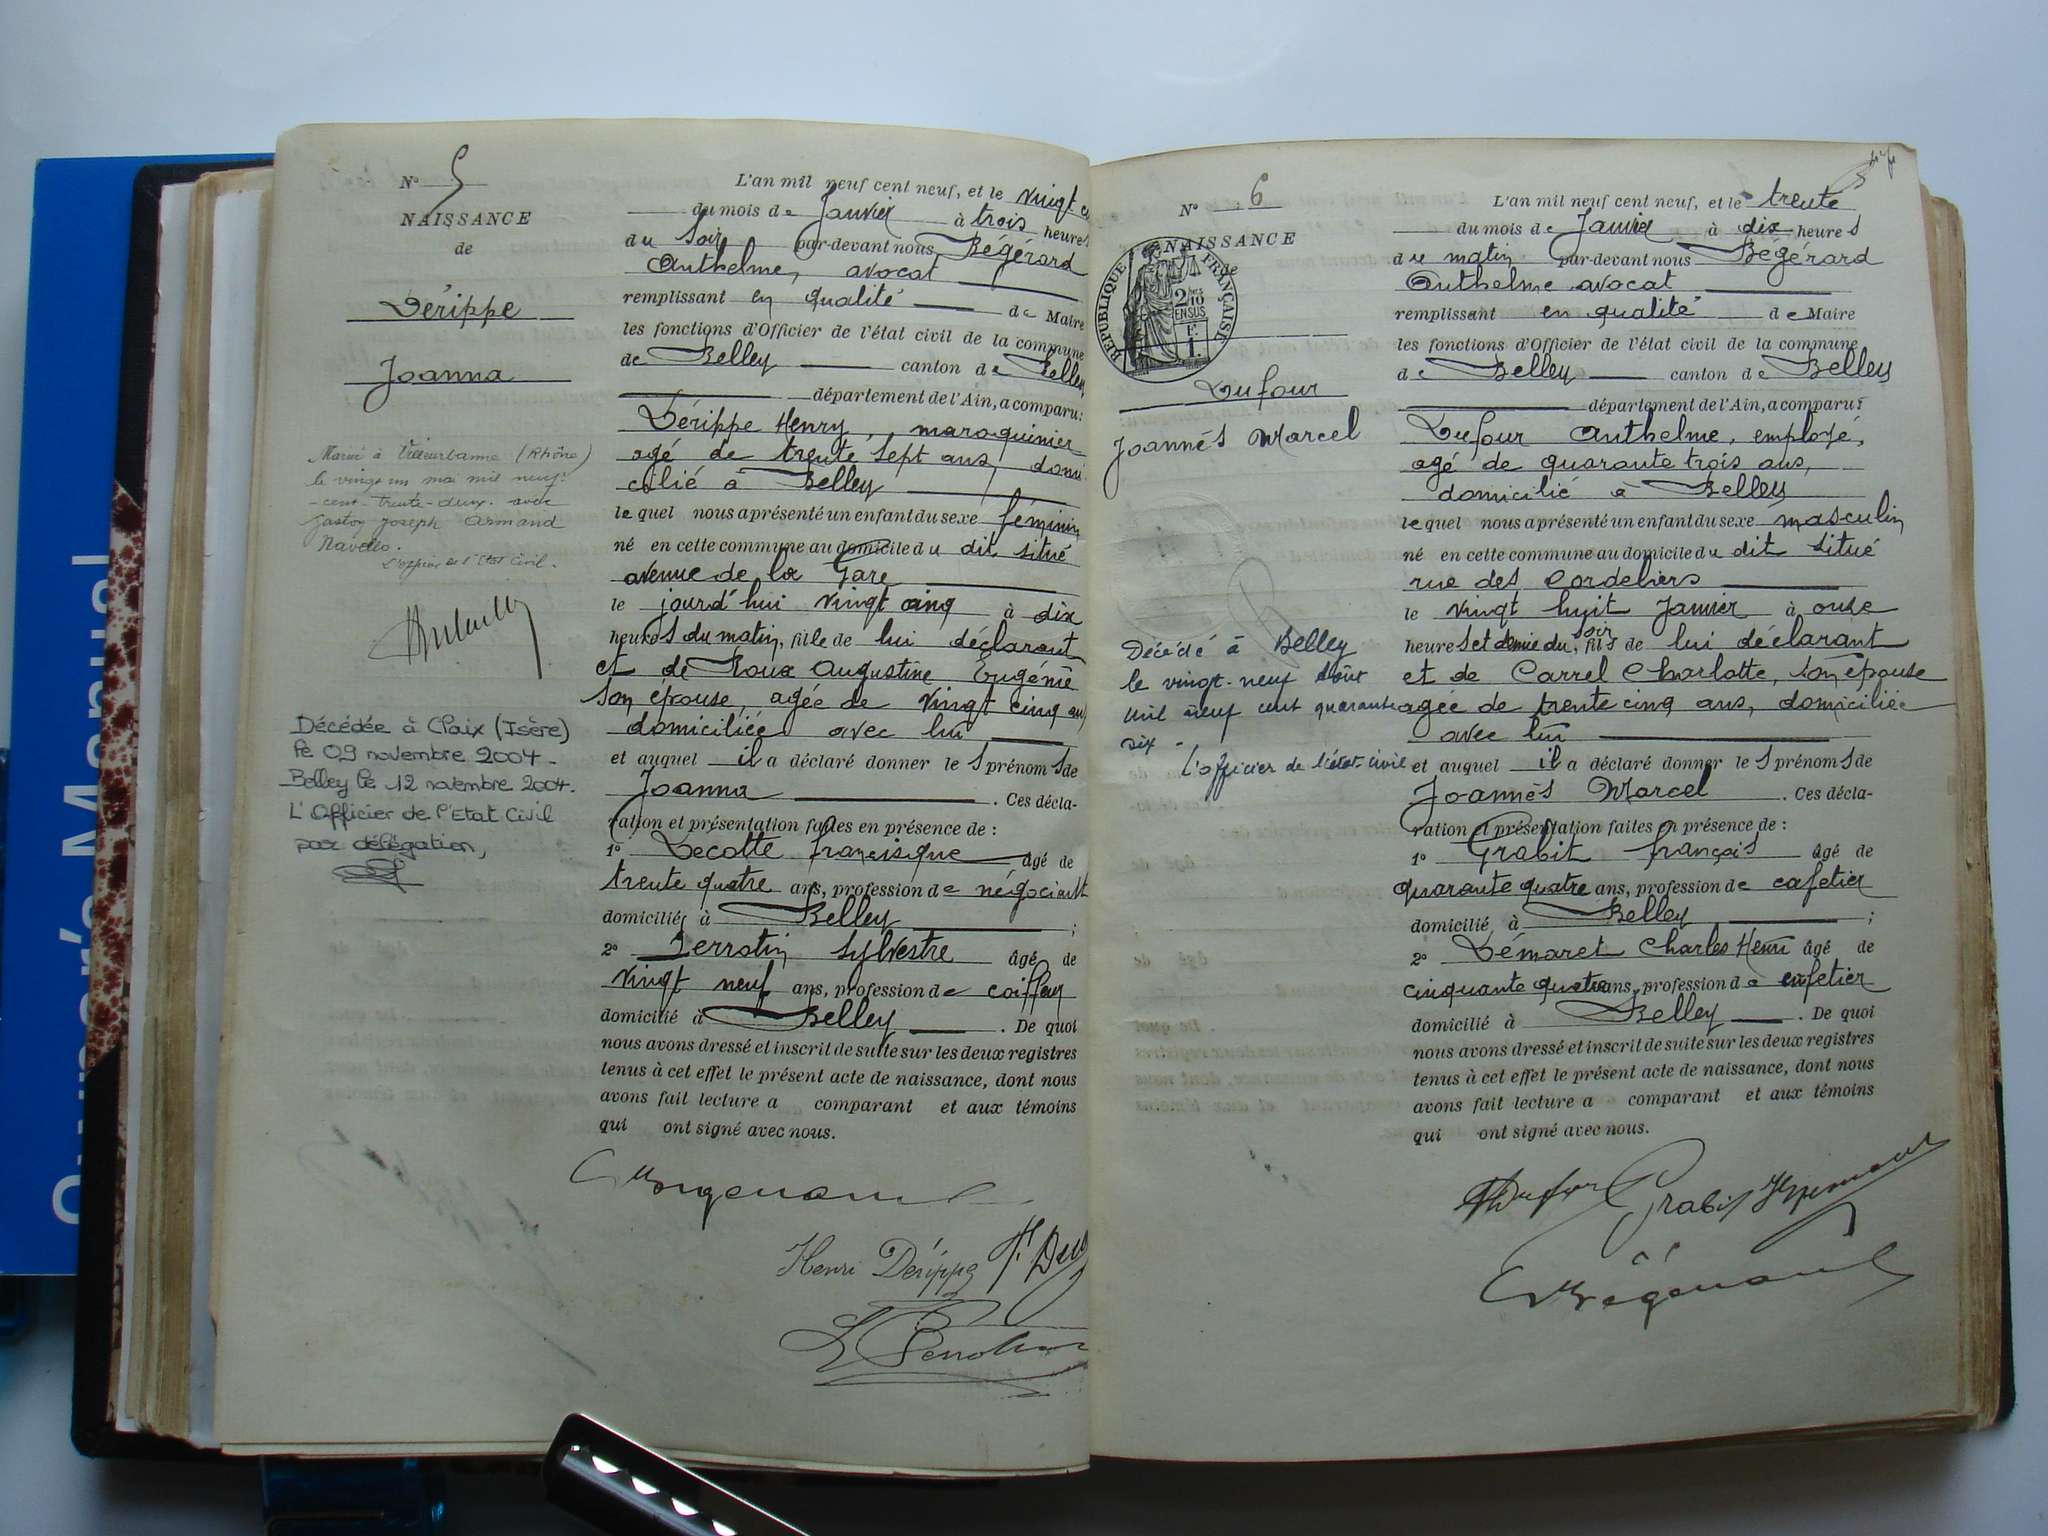 N° 5
NAISSANCE
de
Dérippe
Joanna
Marié à Villeurbanne (Rhône)
le vingt un mai mil neuf
-cent-trente-deux. avec
Gaston Joseph Armand
Navello.
L'officier de l'Etat Civil.
Décédée à Claix (Isère)
le 09 novembre 2004-
Belley le 12 novembre 2004.
L'Officier de l'Etat Civil
par délégation,
L'an mil neuf cent neuf, et le vingt
du mois de Janvier à trois heures
du soir par-devant nous, Bégérard
Anthelme, avocat
remplissant en qualité de Maire
les fonctions d'Officier de l'état civil de la commune
de Belley canton de Belley
département de l'Ain, a comparu:
Dérippe Henry, maroquinier
agé de trente sept ans, domi
cilié à Belley
lequel nous a présenté un enfant du sexe féminin
né en cette commune au domicile du dit situé
avenue de la Gare
le jourd'hui vingt cinq à dix
heures du matin, fille de lui déclarant
et de Roux Augustine Eugénie
son épouse, agée de vingt cinq ans
domiciliée avec lui
et auquel il a déclaré donner les prénoms de
Joanna . Ces décla-
ration et présentation faites en présence de :
1° Decotte françisque âgé de
trente quatre ans, profession de négociant
domicilié à Belley ;
2° Perrotin Sylvestre âgé de
vingt neuf ans, profession de coiffeur
domicilié à Belley . De quoi
nous avons dressé et inscrit de suite sur les deux registres
tenus à cet effet le présent acte de naissance, dont nous
avons fait lecture a comparant et aux témoins
qui ont signé avec nous.
Henri Dérippe
N° 6
NAISSANCE
de
RÉPUBLIQUE FRANÇAISE
2/10
EN SUS
Dufour
Joannès Marcel
Décédé à Belley
le vingt-neuf août
mil neuf cent quarante
six -
L'officier de l'état-civil
L'an mil neuf cent neuf, et le trente
du mois de Janvier à dix heures
du matin par-devant nous Bégérard
Anthelme avocat
remplissant en qualité de Maire
les fonctions d'Officier de l'état civil de la commune
de Belley canton de Belley
département de l'Ain, a comparu:
Dufour Anthelme, employé,
agé de quarante trois ans,
domicilié à Belley
lequel nous a présenté un enfant du sexe masculin
né en cette commune au domicile du dit situé
rue des Cordeliers
le vingt huit Janvier à onze
heures et demie du soir, fils de lui déclarant
et de Carrel Charlotte, son épouse
agée de trente cinq ans, domiciliée
avec lui
et auquel il a déclaré donner les prénoms de
Joannès Marcel . Ces décla-
ration et présentation faites en présence de :
1° Grabit françois âgé de
quarante quatre ans, profession de cafetier
domicilié à Belley ;
2° Démaret Charles Henri âgé de
cinquante quatre ans, profession de cafetier
domicilié à Belley . De quoi
nous avons dressé et inscrit de suite sur les deux registres
tenus à cet effet le présent acte de naissance, dont nous
avons fait lecture a comparant et aux témoins
qui ont signé avec nous.
Dufour Grabit